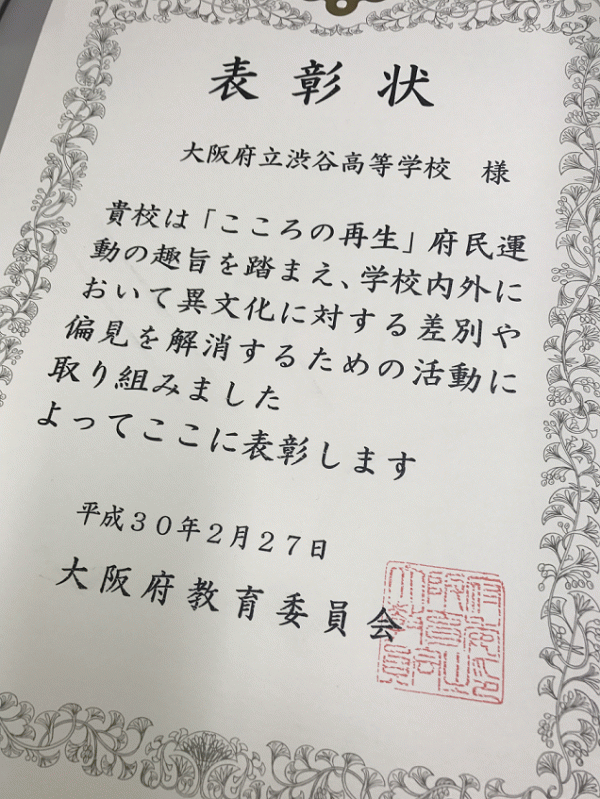 表彰状
大阪府立渋谷高等学校 様
貴校は「こころの再生」府民運
動の趣旨を踏まえ、学校内外に
おいて異文化に対する差別や
偏見を解消するための活動に
取り組みました
よってここに表彰します
平成30年2月27日
大阪府教育委員会